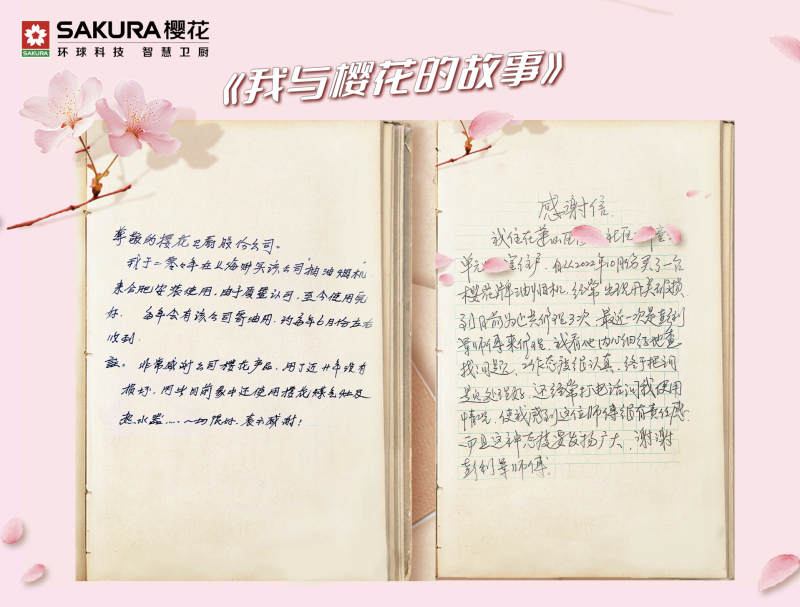 SAKURA
SAKURA樱花
环球科技 智慧卫厨
《我与樱花的故事》
尊敬的樱花卫厨股份公司。
我于二零零年在上海购买该公司"抽油烟机"
来合肥安装使用,由于质量认可,至今使用完
好. 每年会有该公司寄油用,约每年6月份左右
收到.
兹。非常感谢公司樱花产品,用了近廿年没有
损坏,因此目前家中还使用樱花煤气灶及
热水器……一切很好.表示感谢!
感谢信.
我住在 社区
单元 室住户,自从2022年10月份买了一台
樱花牌油烟机,经常出现开关破损
到目前为止共修理3次,最近一次是彭利
军师傅来修理,我看他内心细仔地查
找问题,工作态度很认真,终于把问
题处理好,还经常打电话问我使用
情况,使我感到这位师傅很有责任感.
而且这种态度要发扬广大,谢谢
彭利军师傅.